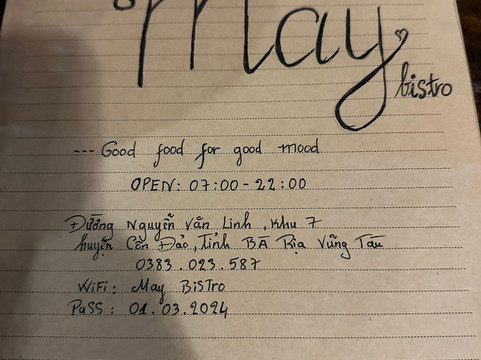 May
bistro
--- Good food for good mood
OPEN: 07:00 - 22:00
Đường Nguyễn Văn Linh, Khu 7
huyện Côn Đảo, Tỉnh BÀ Rịa Vũng Tàu
0383.023.587
WiFi: May BiSTro
PaSS: 01.03.2024